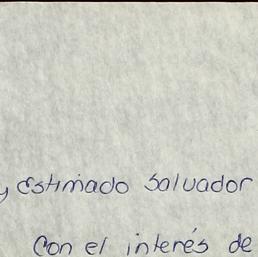 y Estimado Salvador
Con el interés de